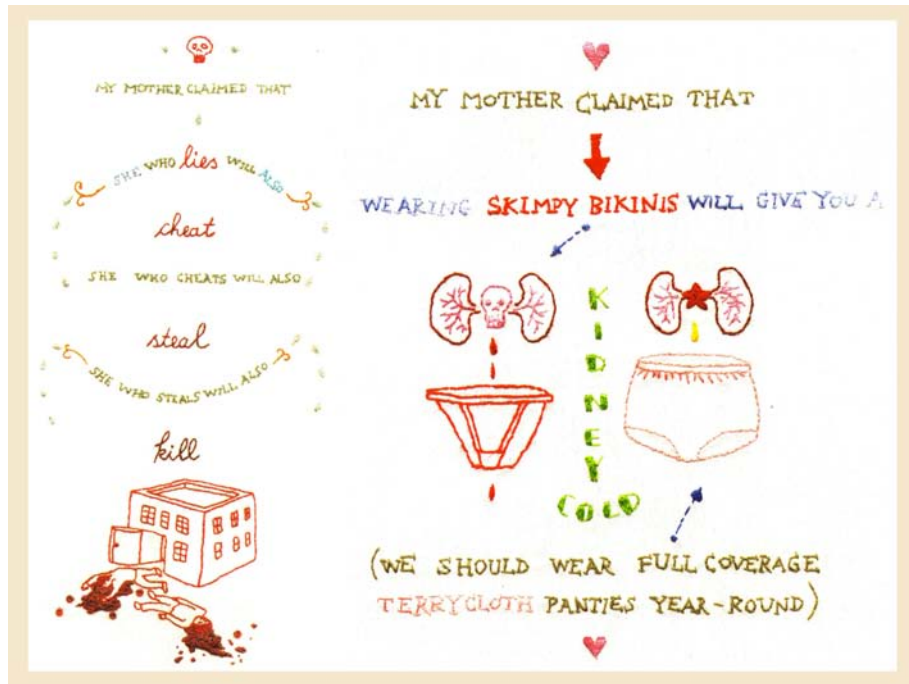 MY MOTHER CLAIMED THAT
SHE WHO lies WILL ALSO
cheat
SHE WHO CHEATS WILL ALSO
steal
SHE WHO STEALS WILL ALSO
kill
MY MOTHER CLAIMED THAT
WEARING SKIMPY BIKINIS WILL GIVE YOU A
KIDNEY
COLD
(WE SHOULD WEAR FULL COVERAGE
TERRYCLOTH PANTIES YEAR-ROUND)